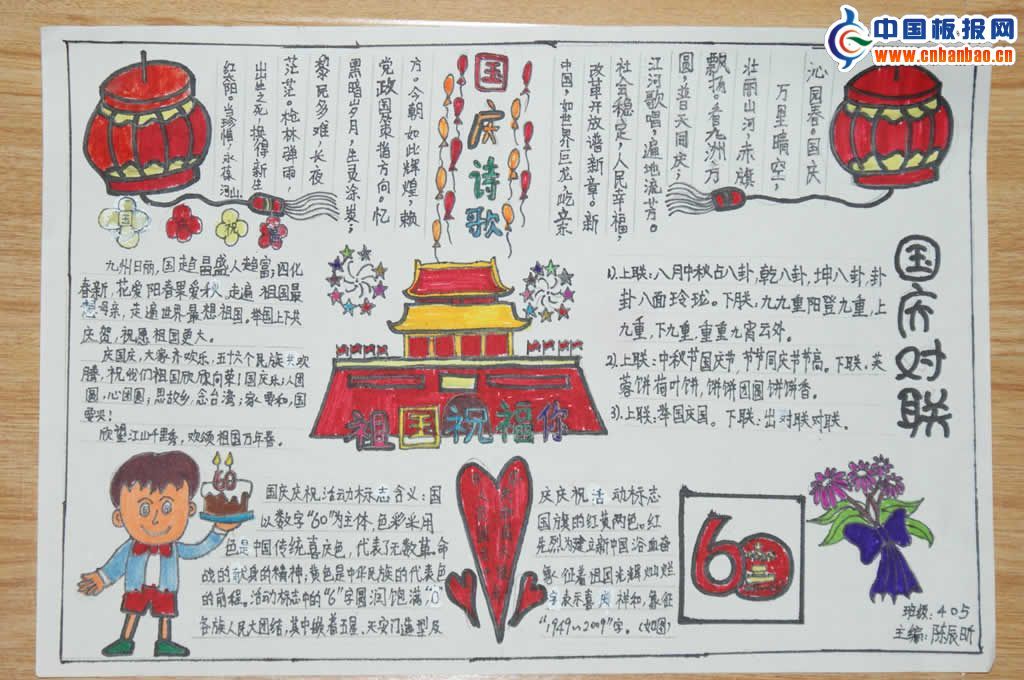 中国板报网
www.cnbanbao.cn
国庆诗歌
沁园春·国庆
万里晴空,
壮丽山河,赤旗
飘扬。看九洲方
圆,普天同庆;
江河歌唱,遍地流芳。
社会稳定,人民幸福,
改革开放谱新章。新
中国,如世界巨龙,屹立东
方。今朝如此辉煌,赖
党政国策指方向。忆
黑暗岁月,生灵涂炭;
黎民多难,长夜
茫茫。枪林弹雨,
出生之死,换得新生
红艳阳。当珍惜,永葆河山
国
祝
九州日丽,国越昌盛人越富;四化
春新,花爱阳春果爱秋,走遍祖国最
想母亲,走遍世界最想祖国。举国上下共
庆贺,祝愿祖国更大。
庆国庆,大家齐欢乐,五十六个民族共欢
腾,祝我们祖国欣欣向荣!国庆乐;人团
圆,心团圆;思故乡,念台湾;家要和,国
要兴!
欣望江山千里秀,欢颂祖国万年春。
祖国祝福你
国庆对联
1).上联:八月中秋占八卦,乾八卦,坤八卦,卦
卦八面玲珑。下联,九九重阳登九重,上
九重,下九重,重重九宵云外。
2).上联:中秋节国庆节,节节同庆节节高,下联,芙
蓉饼荷叶饼,饼饼团圆饼饼香。
3).上联:举国庆国。下联:出对联对联。
60
国庆庆祝活动标志含义:国
以数字“60”为主体,色彩采用
色是中国传统喜庆色,代表了无数革命
战的献身的精神;黄色是中华民族的代表色
的前程。活动标志中的“6”字圆润饱满“0”
各族人民大团结,其中嵌着五星、天安门造型及
庆庆祝活动标志
国旗的红黄两色。红
先烈为建立新中国浴血奋
象征着祖国光辉灿烂
字表示喜庆祥和,象征
“1949~2009”字。(如图)
60
班级:405
主编:陈辰昕